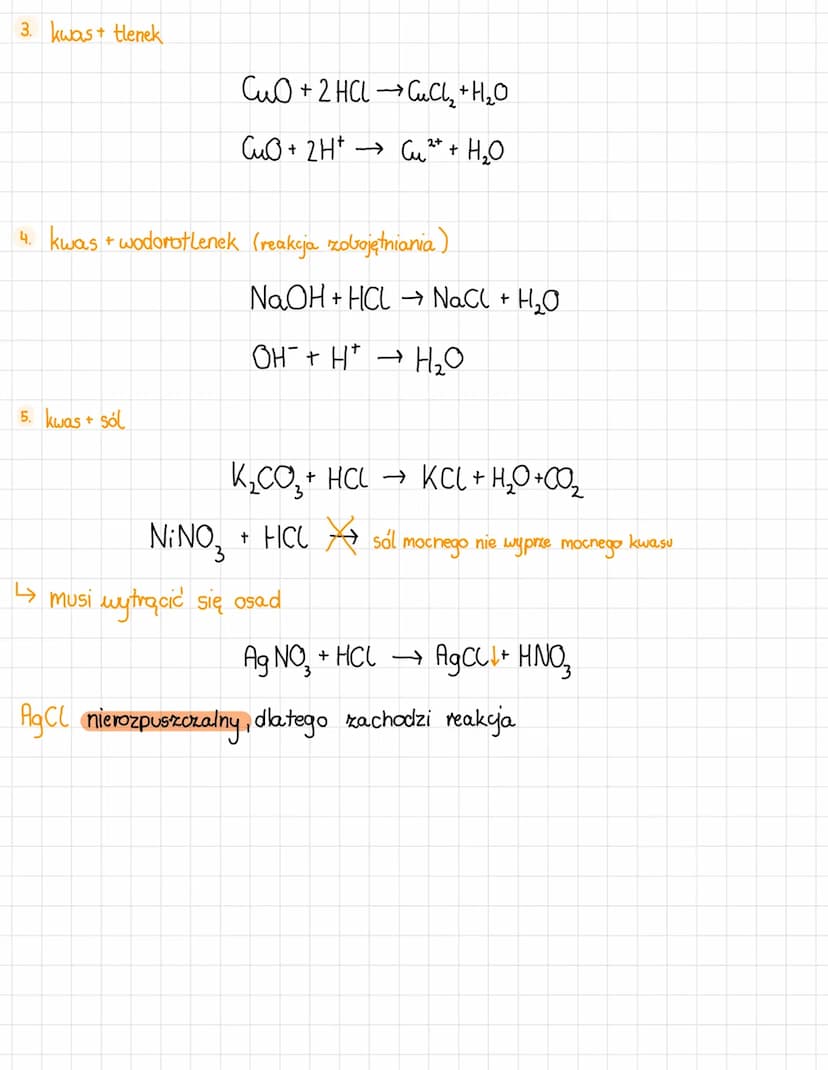 3. kwas + tlenek
CuO + 2HCl → CuCl₂ + H₂O
CuO + 2H⁺ → Cu²⁺ + H₂O
4. kwas + wodorotlenek (reakcja zobojętniania)
NaOH + HCl → NaCl + H₂O
OH⁻ + H⁺ → H₂O
5. kwas + sól
K₂CO₃ + HCl → KCl + H₂O + CO₂
NiNO₃ + HCl → sól mocnego nie wyprze mocnego kwasu
↳ musi wytrącić się osad
AgNO₃ + HCl → AgCl↓ + HNO₃
AgCl nierozpuszczalny, dlatego zachodzi reakcja